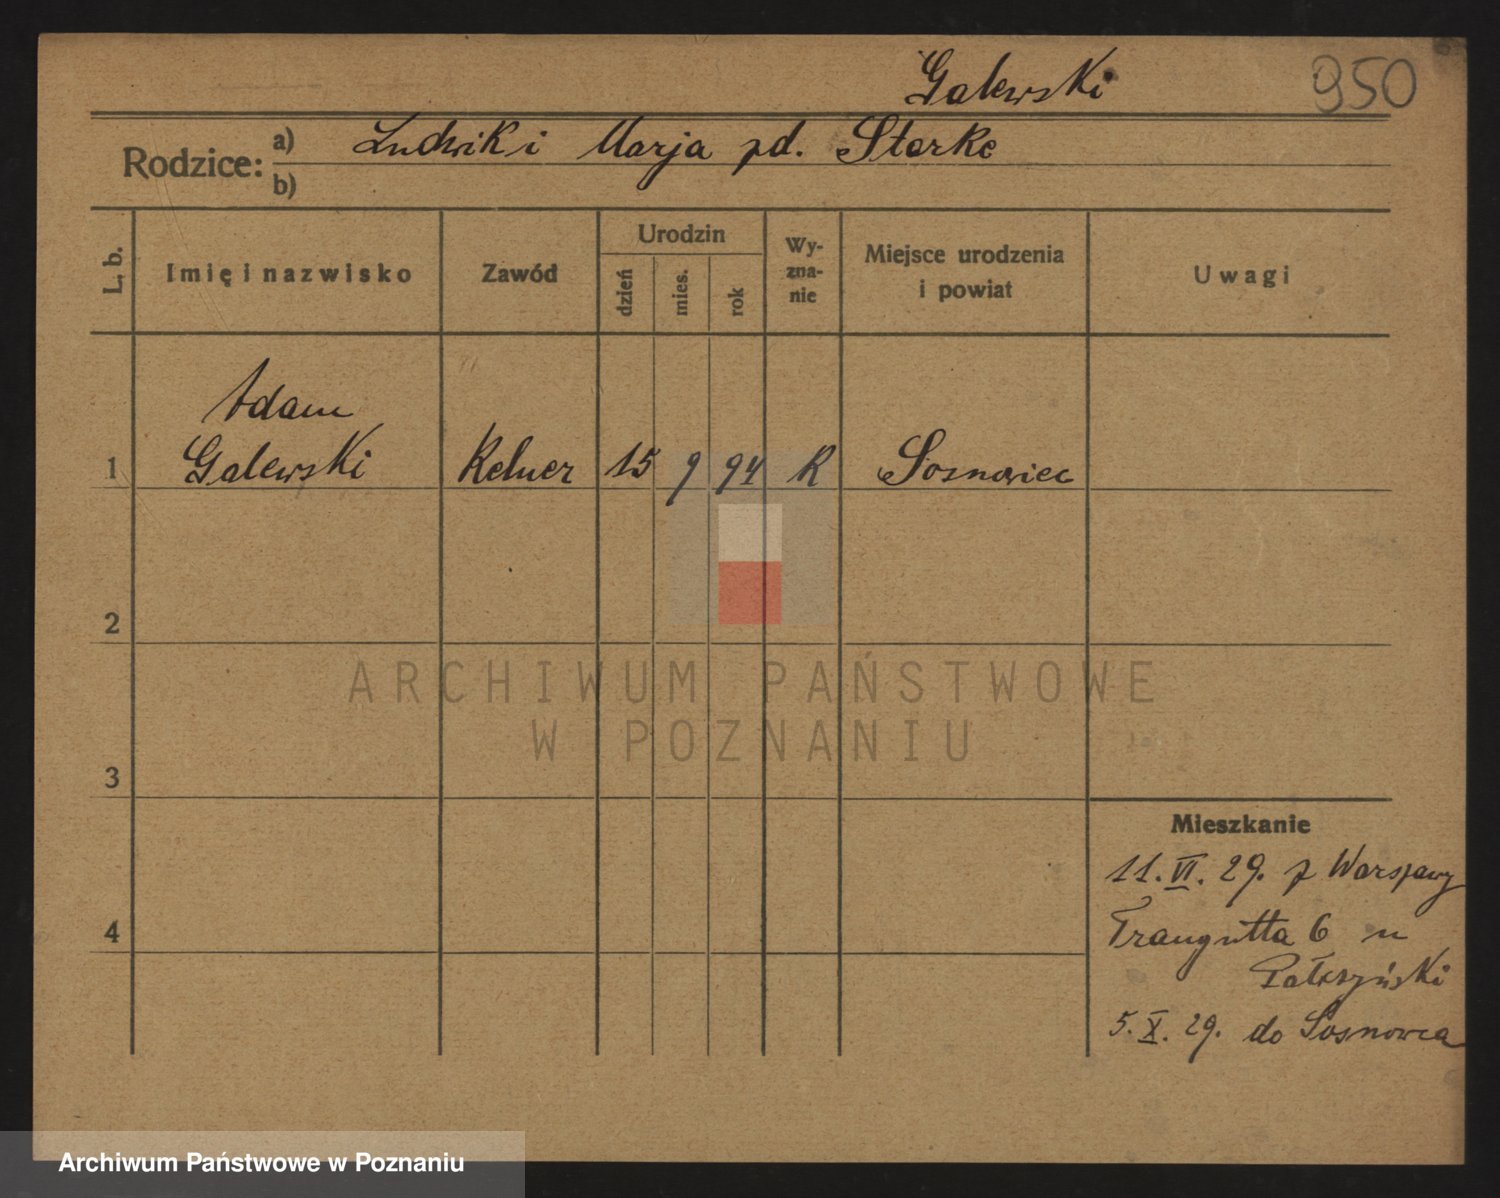 Galewski
950
Rodzice:
a) Ludwik i Marja pd. Starke
b)
L. b.
Imię i nazwisko
Zawód
Urodzin
dzień
mies.
rok
Wy-
zna-
nie
Miejsce urodzenia
i powiat
Uwagi
Adam
1 Galewski Kelner 15 9 94 R Sosnowiec
2
3
4
Mieszkanie
11. VI. 29. z Warszawy
Traugutta 6 u
5. X. 29. do Sosnowca
ARCHIWUM PAŃSTWOWE
W POZNANIU
Archiwum Państwowe w Poznaniu